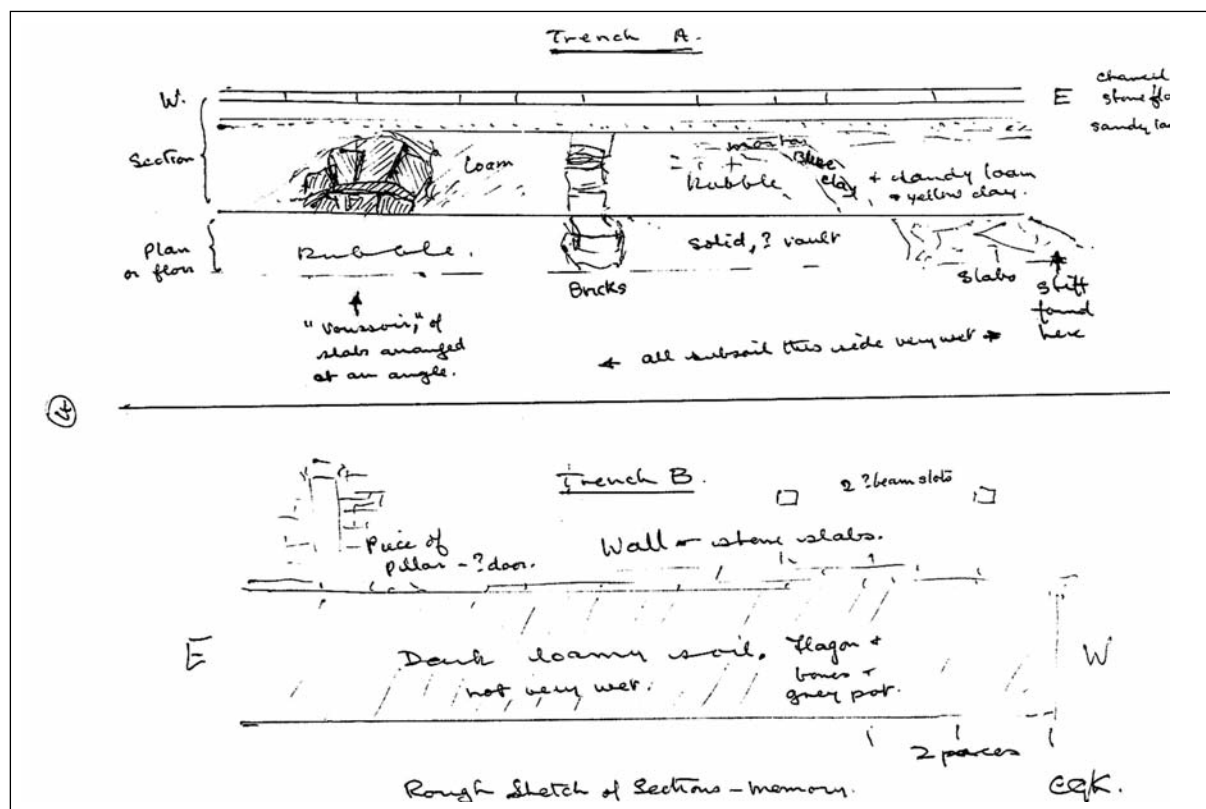 Trench A.
W.
E
chancel
stone flo
sandy loa
Section
Loam
mortar
+
Rubble
Blue
clay
+ sandy loam
+ yellow clay.
Plan
or floor
Rubble.
solid, ? vault
Bricks
Slabs
found
here
"Voussoir," of
slabs arranged
at an angle.
← all subsoil this side very wet →
Trench B.
2 ? beam slots
Piece of
pillar - ? door.
Wall - stone slabs.
E
Dark loamy soil.
not very wet.
Flagon +
bones +
grey pot.
W
2 paces
Rough Sketch of Sections - memory.